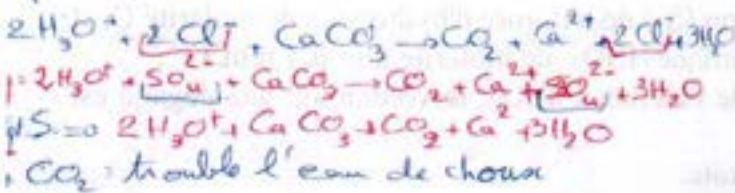 2H₃O⁺ + 2Cl⁻ + CaCO₃ → CO₂ + Ca²⁺ + 2Cl⁻ + 3H₂O
2H₃O⁺ + SO₄²⁻ + CaCO₃ → CO₂ + Ca²⁺ + SO₄²⁻ + 3H₂O
2H₃O⁺ + CaCO₃ → CO₂ + Ca²⁺ + 3H₂O
CO₂ : trouble l'eau de chaux